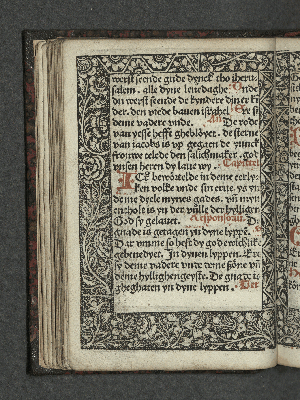 werst seende gude dynck tho iheru
salem. alle dyne leuedaghe. Unde
du werst seende de kyndere dyner ki
der. den vrede bauen israhel. Ere si
deme vadere vnde. De rode
van yesse hefft ghebloyet. de sterne
van iacobs is vp gegaen de yunck
frouwe telede den salichmaker. god
vnsen heren dy lauen wy. Capittel
ICk bewortelde in deme eerly
ken volke vnde sin erue. ys yn
deme deele mynes gades. vn myn
entholt is yn der vulle der hylligen
God sy gelauet. Responsorium D
gnade is getagen yn dyne lyppen.
Dar vmme so heft dy god ewichlike
gebenedyet. In dynen lyppen. Ere
sy deme vadere vnde deme sone vn
deme hyllighengeyste. De gnade is
gheghaten yn dyne lyppen. Der